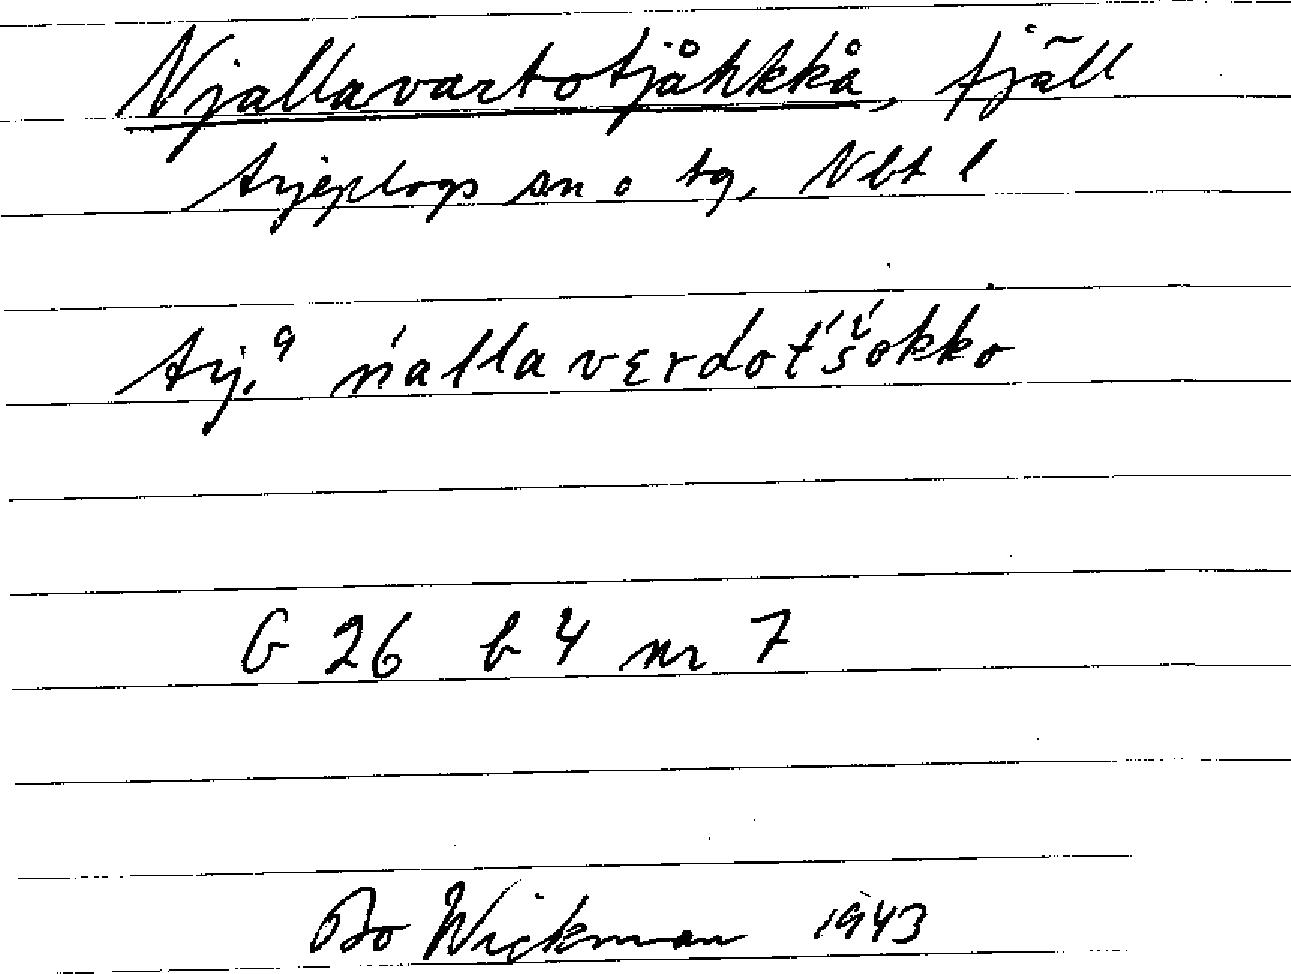 Njallavartotjåhkkå, fjäll
Arjeplogs sn o tg, Nbt l
Arj. ń a l l a v ε r d o t́ š́ o k k o
G 26 b 4 nr 7
Bo Wickman 1943